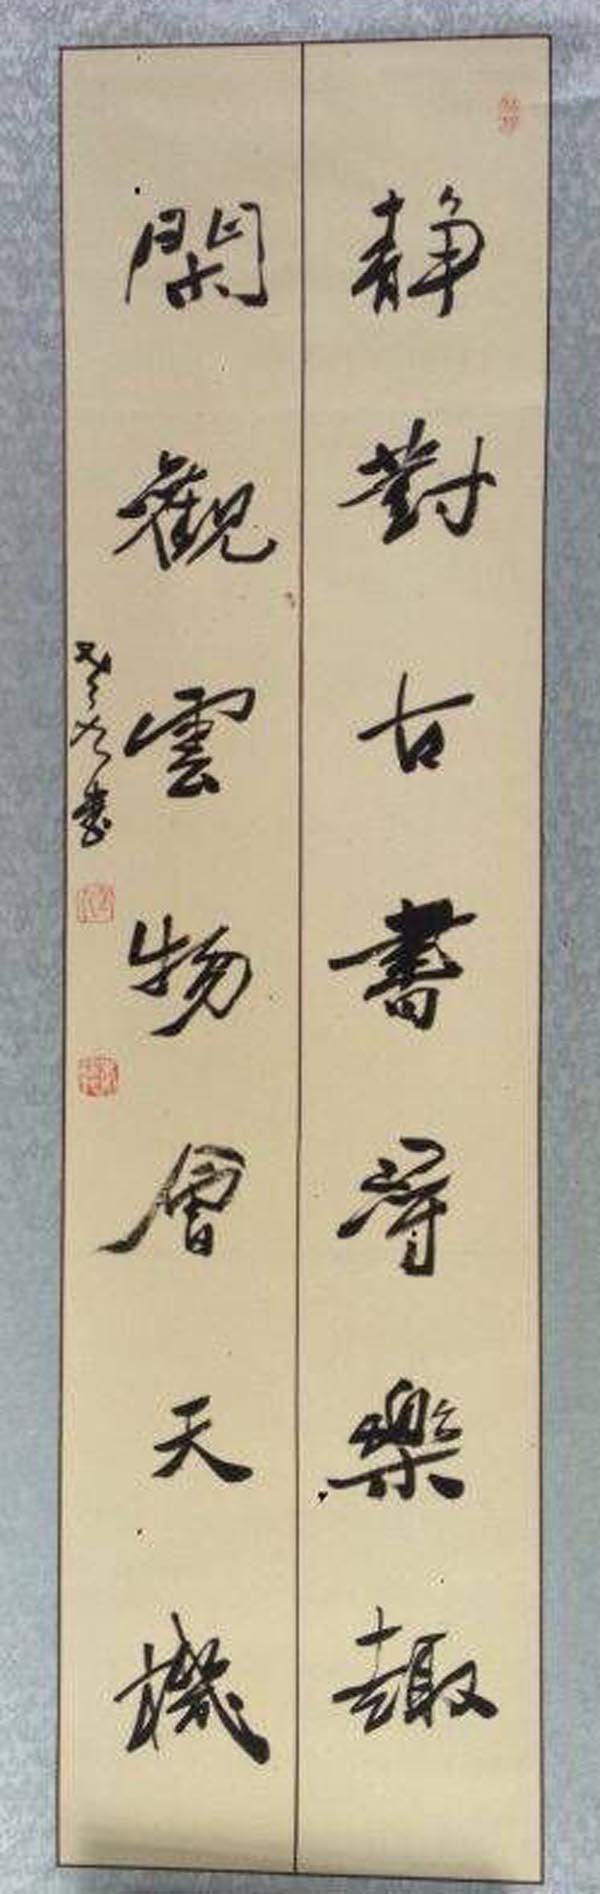 静對古書得樂趣
閑觀雲物會天機
書